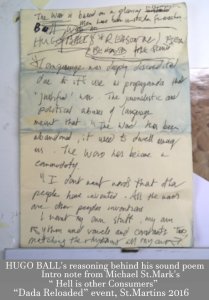 The WORD is based on a glaring
BALL
HUGO BALL'S REASONING
Language was deeply discredited
due to its use as propaganda that
"justified" war. The journalistic and
political abuses of language
meant that " The Word has been
abandoned, it used to dwell among
us - The WORD has become a
commodity.
" I don't want words that other
people have invented. All the words
are other people's inventions
I want my own stuff, my own
rhythm and vowels and consonants too
matching the rhythm all my own"
HUGO BALL's reasoning behind his sound poem
Intro note from Michael St.Mark's
" Hell is other Consumers"
"Dada Reloaded" event, St.Martins 2016